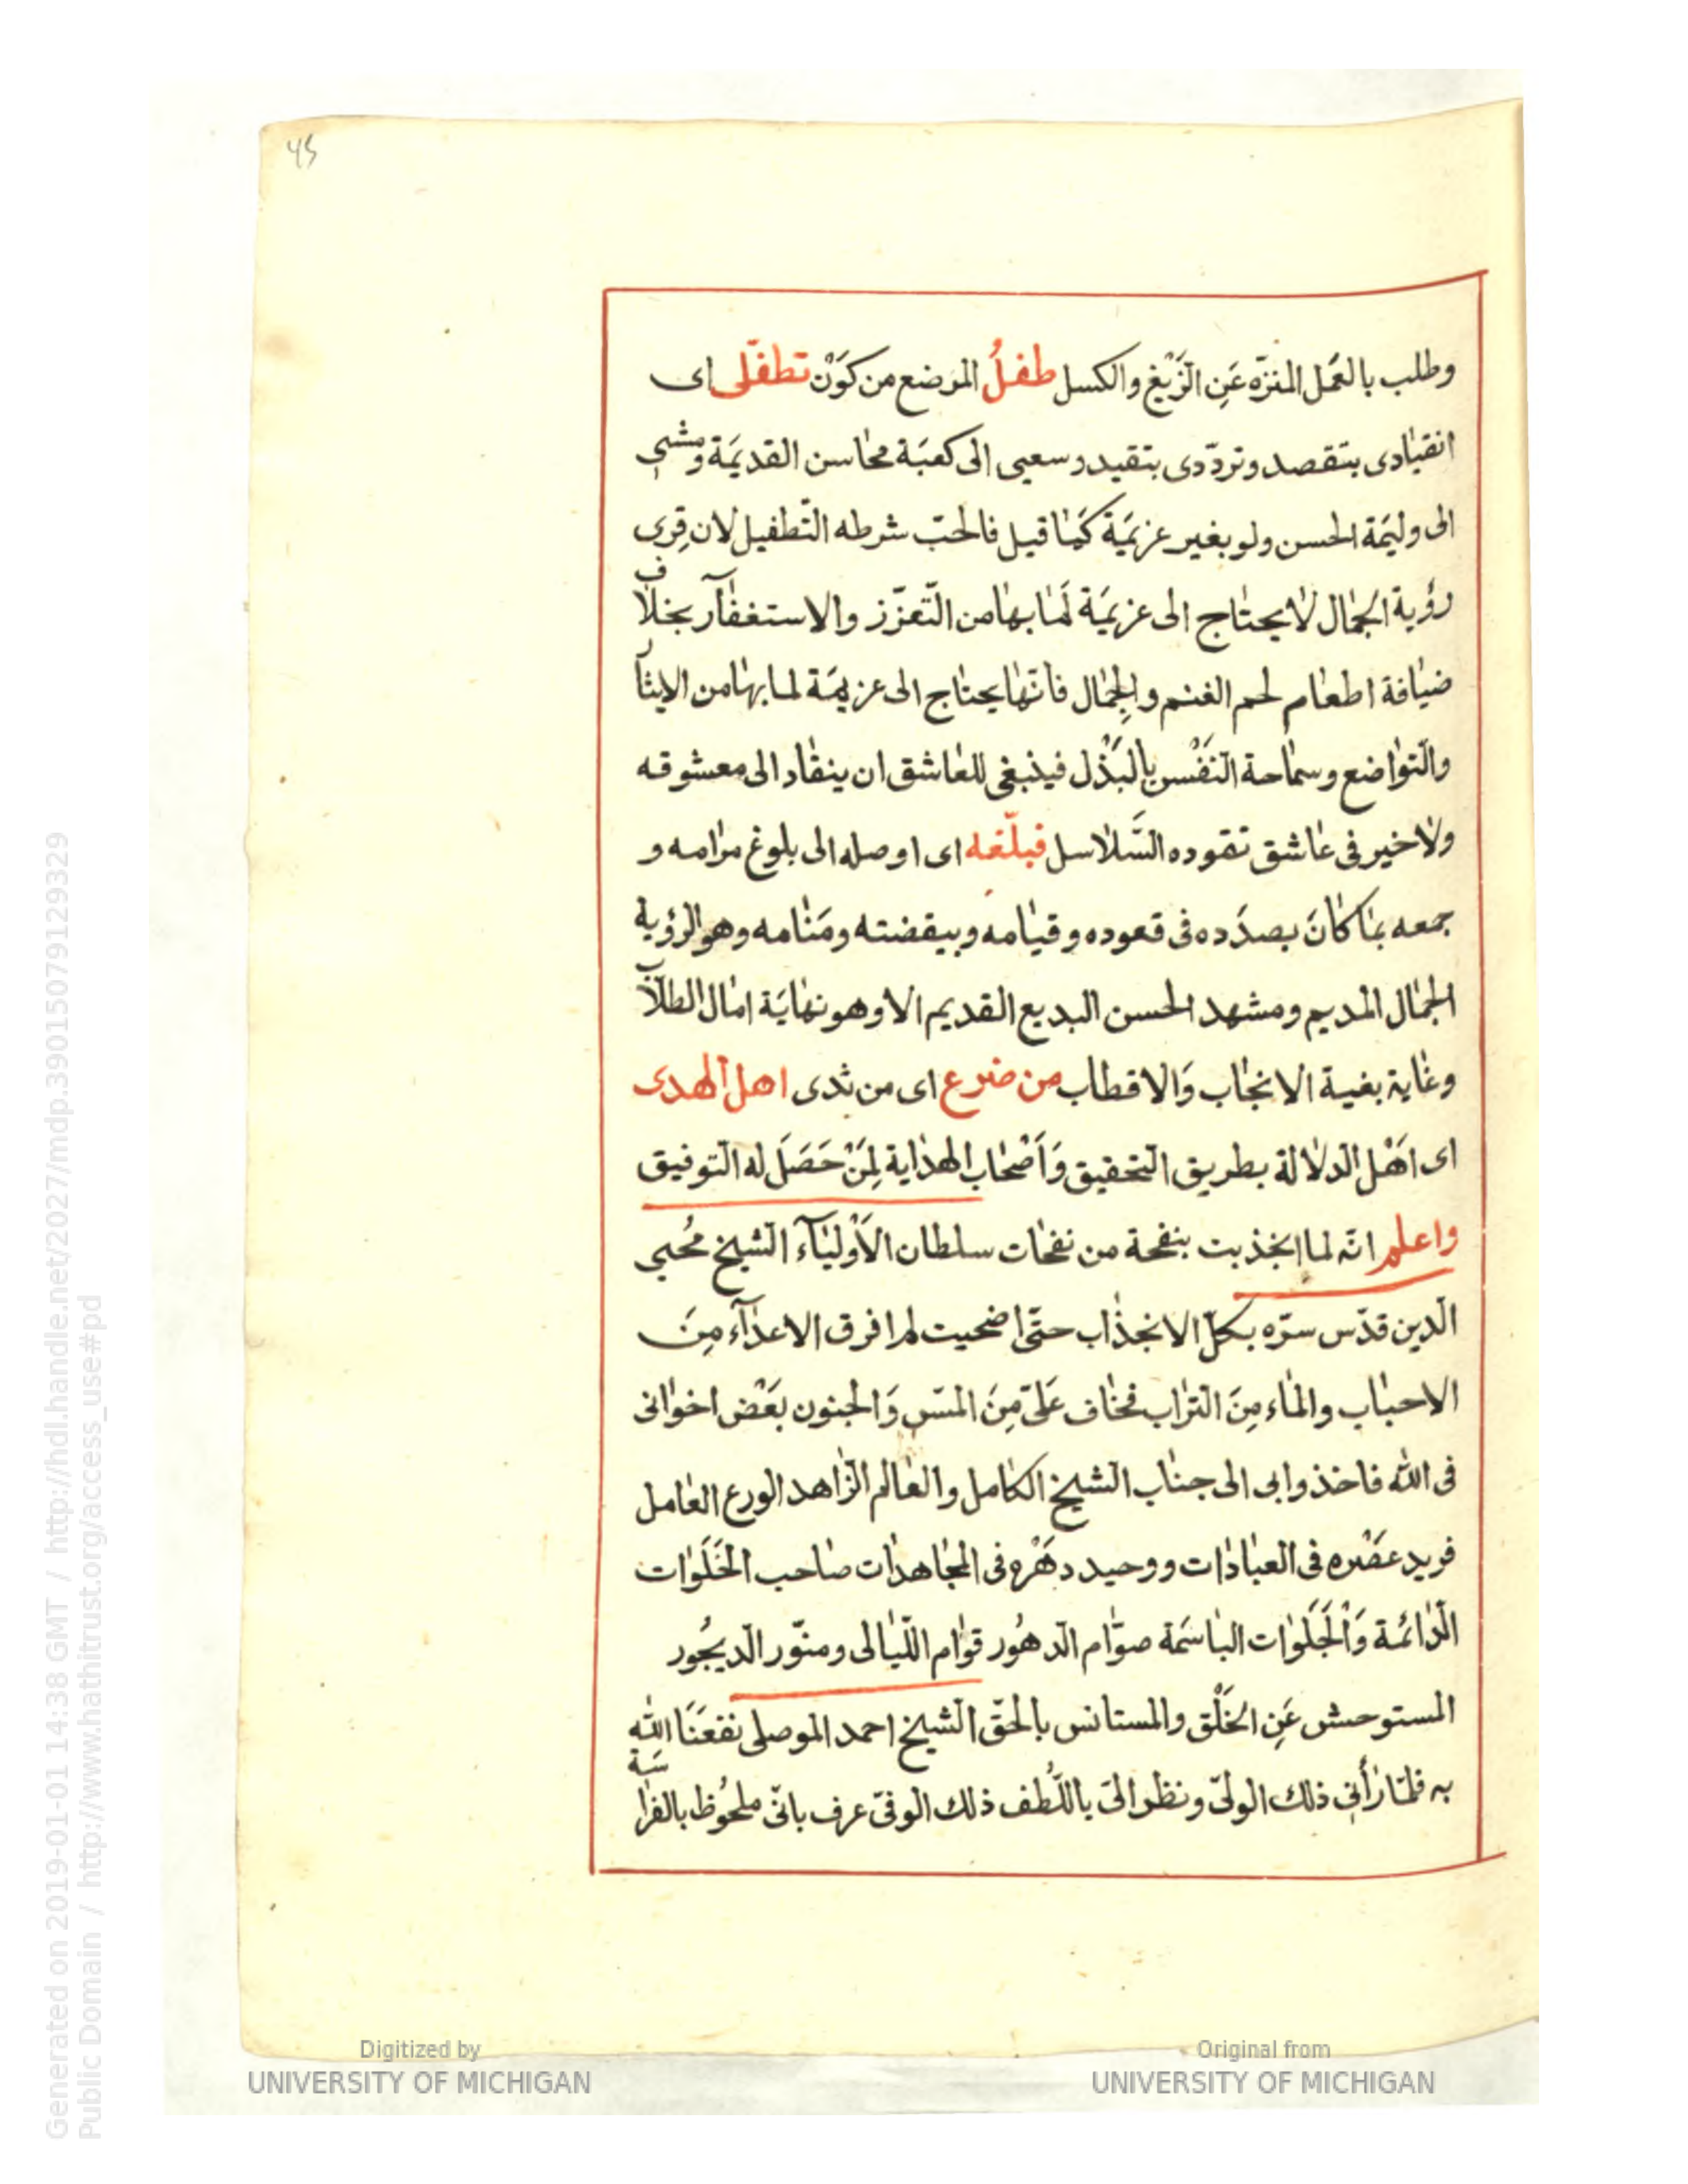 45
وطلب بالعَمَل المنزّه عَنِ الزَّيْغ والكسل طفلُ المرَضع من كوَنْ تطفّلى اى
انقيادى بتقصد وتردّدى بتقيد وسعيى الى كعبَة محاسن القديمَة ومشيى
الى وليمَة الحسن ولو بغير عزيمَة كمَا قيل فالحبّ شرطه التّطفيل لان قِرى
رؤية الجمَال لا يحتاج الى عزيمَة لمَا بها من التّعزّز والاستغفار بخلاف
ضيافة اطعام لحم الغنم والجِمَال فانّها يحتاج الى عزيمَة لما بها من الايثار
والتواضع وسماحة النَفْس بالبَذْل فينبغى للعاشق ان ينقاد الى معشوقه
ولا خير فى عاشق تقوده السَّلاسل فبلّغه اى اوصله الى بلوغ مرامه و
جمعه بمَا كانَ بصدَده فى قعوده وقيامه وبيقضته ومَنامه وهو الرؤية
الجمَال المديم ومشهد الحسن البديع القديم الا وهو نهايَة امال الطلاّب
وغاية بغية الانجاب وَالاقطاب من ضرع اى من ثدى اهل الهدى
اى اهْل الدلالة بطريق التحقيق وَاَصْحَاب الهدَاية لِمَنْ حَصَلَ له التوفيق
واعلم انّه لما انجذبت بنفحة من نفحات سلطان الاَوْليَآء الشيخ مُحيى
الدين قدّس سرّه بكلّ الانجذاب حتّى اضحيت لم افرق الاعدآء مِنَ
الاحبَاب والمَاء مِنَ الترَاب فخاف عَلىّ مِنَ المسّ وَالجنون بَعْض اخوَانى
فى الله فاخذوا بى الى جناب الشيخ الكامل والعالم الزّاهد الورع العامل
فريد عصْره فى العبادَات ووحيد دهْره فى المجاهدَات صاحب الخَلَوَات
الدّائمة وَالْجَلَوَات البَاسمَة صوّام الدهُور قوّام اللّيالى ومنوّر الديجُور
المستوحش عَنِ الخَلْق والمستانس بالحقّ الشيخ احمد الموصلى نفعَنَا الله
به فلمّا رأنى ذلك الولىّ ونظر الىّ باللُّطف ذلك الوفىّ عرف بانّى ملحُوظ بالفراسَة
Digitized by
UNIVERSITY OF MICHIGAN
Original from
UNIVERSITY OF MICHIGAN
Generated on 2019-01-01 14:38 GMT / http://hdl.handle.net/2027/mdp.39015079129329
Public Domain / http://www.hathitrust.org/access_use#pd